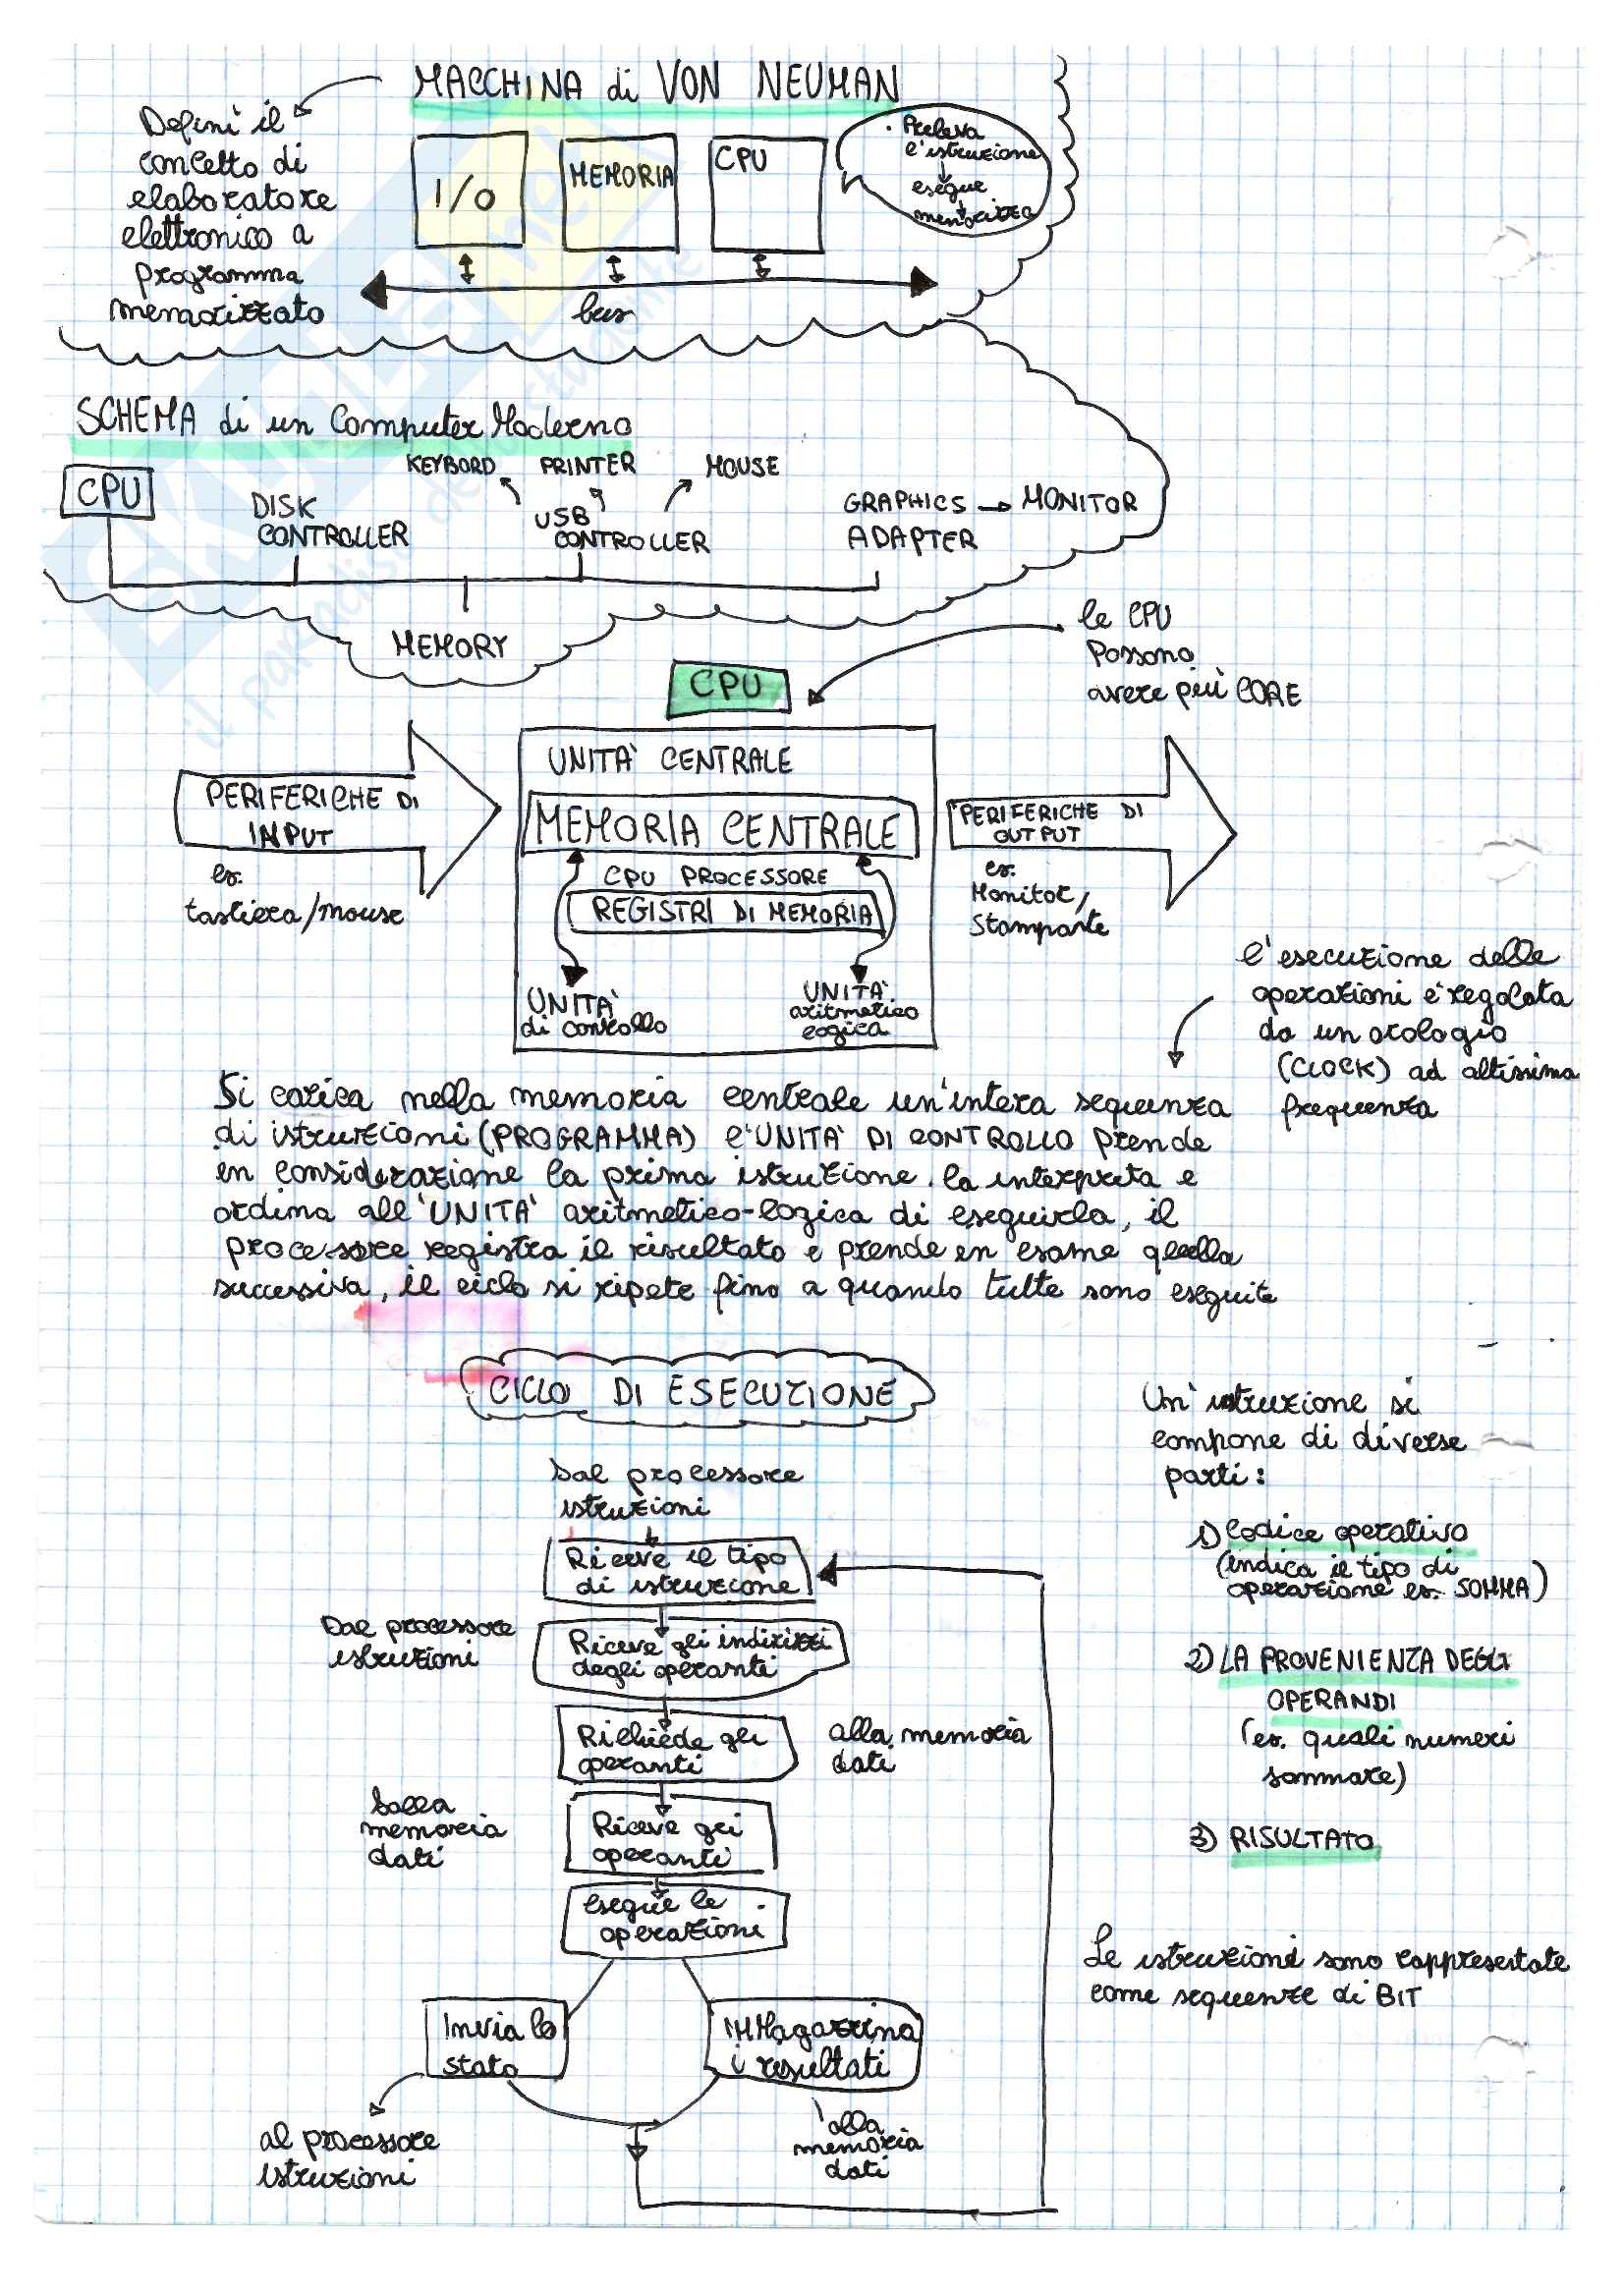 MACCHINA di VON NEUMAN
Definì il
concetto di
elaboratore
elettronico a
programma
memorizzato
I/O
MEMORIA
CPU
• Preleva
l'istruzione
esegue
memorizza
bus
SCHEMA di un Computer Moderno
KEYBORD
PRINTER
MOUSE
CPU
DISK
CONTROLLER
USB
CONTROLLER
GRAPHICS
ADAPTER
MONITOR
MEMORY
le CPU
Possono
avere più CORE
CPU
UNITA' CENTRALE
PERIFERICHE DI
INPUT
es.
tastiera/mouse
MEMORIA CENTRALE
CPU PROCESSORE
REGISTRI DI MEMORIA
UNITA'
di controllo
UNITA'
aritmetico
logica
PERIFERICHE DI
OUTPUT
es.
Monitor/
Stampante
l'esecuzione delle
operazioni è regolata
da un orologio
(CLOCK) ad altissima
frequenza
Si carica nella memoria centrale un'intera sequenza
di istruzioni (PROGRAMMA) l'UNITA' DI CONTROLLO prende
in considerazione la prima istruzione. la interpreta e
ordina all'UNITA' aritmetico-logica di eseguirla, il
processore registra il risultato e prende in esame quella
successiva, il ciclo si ripete fino a quando tutte sono eseguite
CICLO DI ESECUZIONE
Dal processore
istruzioni
Riceve il tipo
di istruzione
Dal processore
istruzioni
Riceve gli indirizzi
degli operanti
Richiede gli
operanti
alla memoria
dati
Dalla
memoria
dati
Riceve gli
operanti
esegue le
operazioni
Invia lo
stato
IMMagazzina
i risultati
al processore
istruzioni
alla
memoria
dati
Un'istruzione si
compone di diverse
parti:
1) Codice operativo
(indica il tipo di
operazione es. SOMMA)
2) LA PROVENIENZA DEGLI
OPERANDI
(es. quali numeri
sommare)
3) RISULTATO
Le istruzioni sono rappresentate
come sequenze di BIT